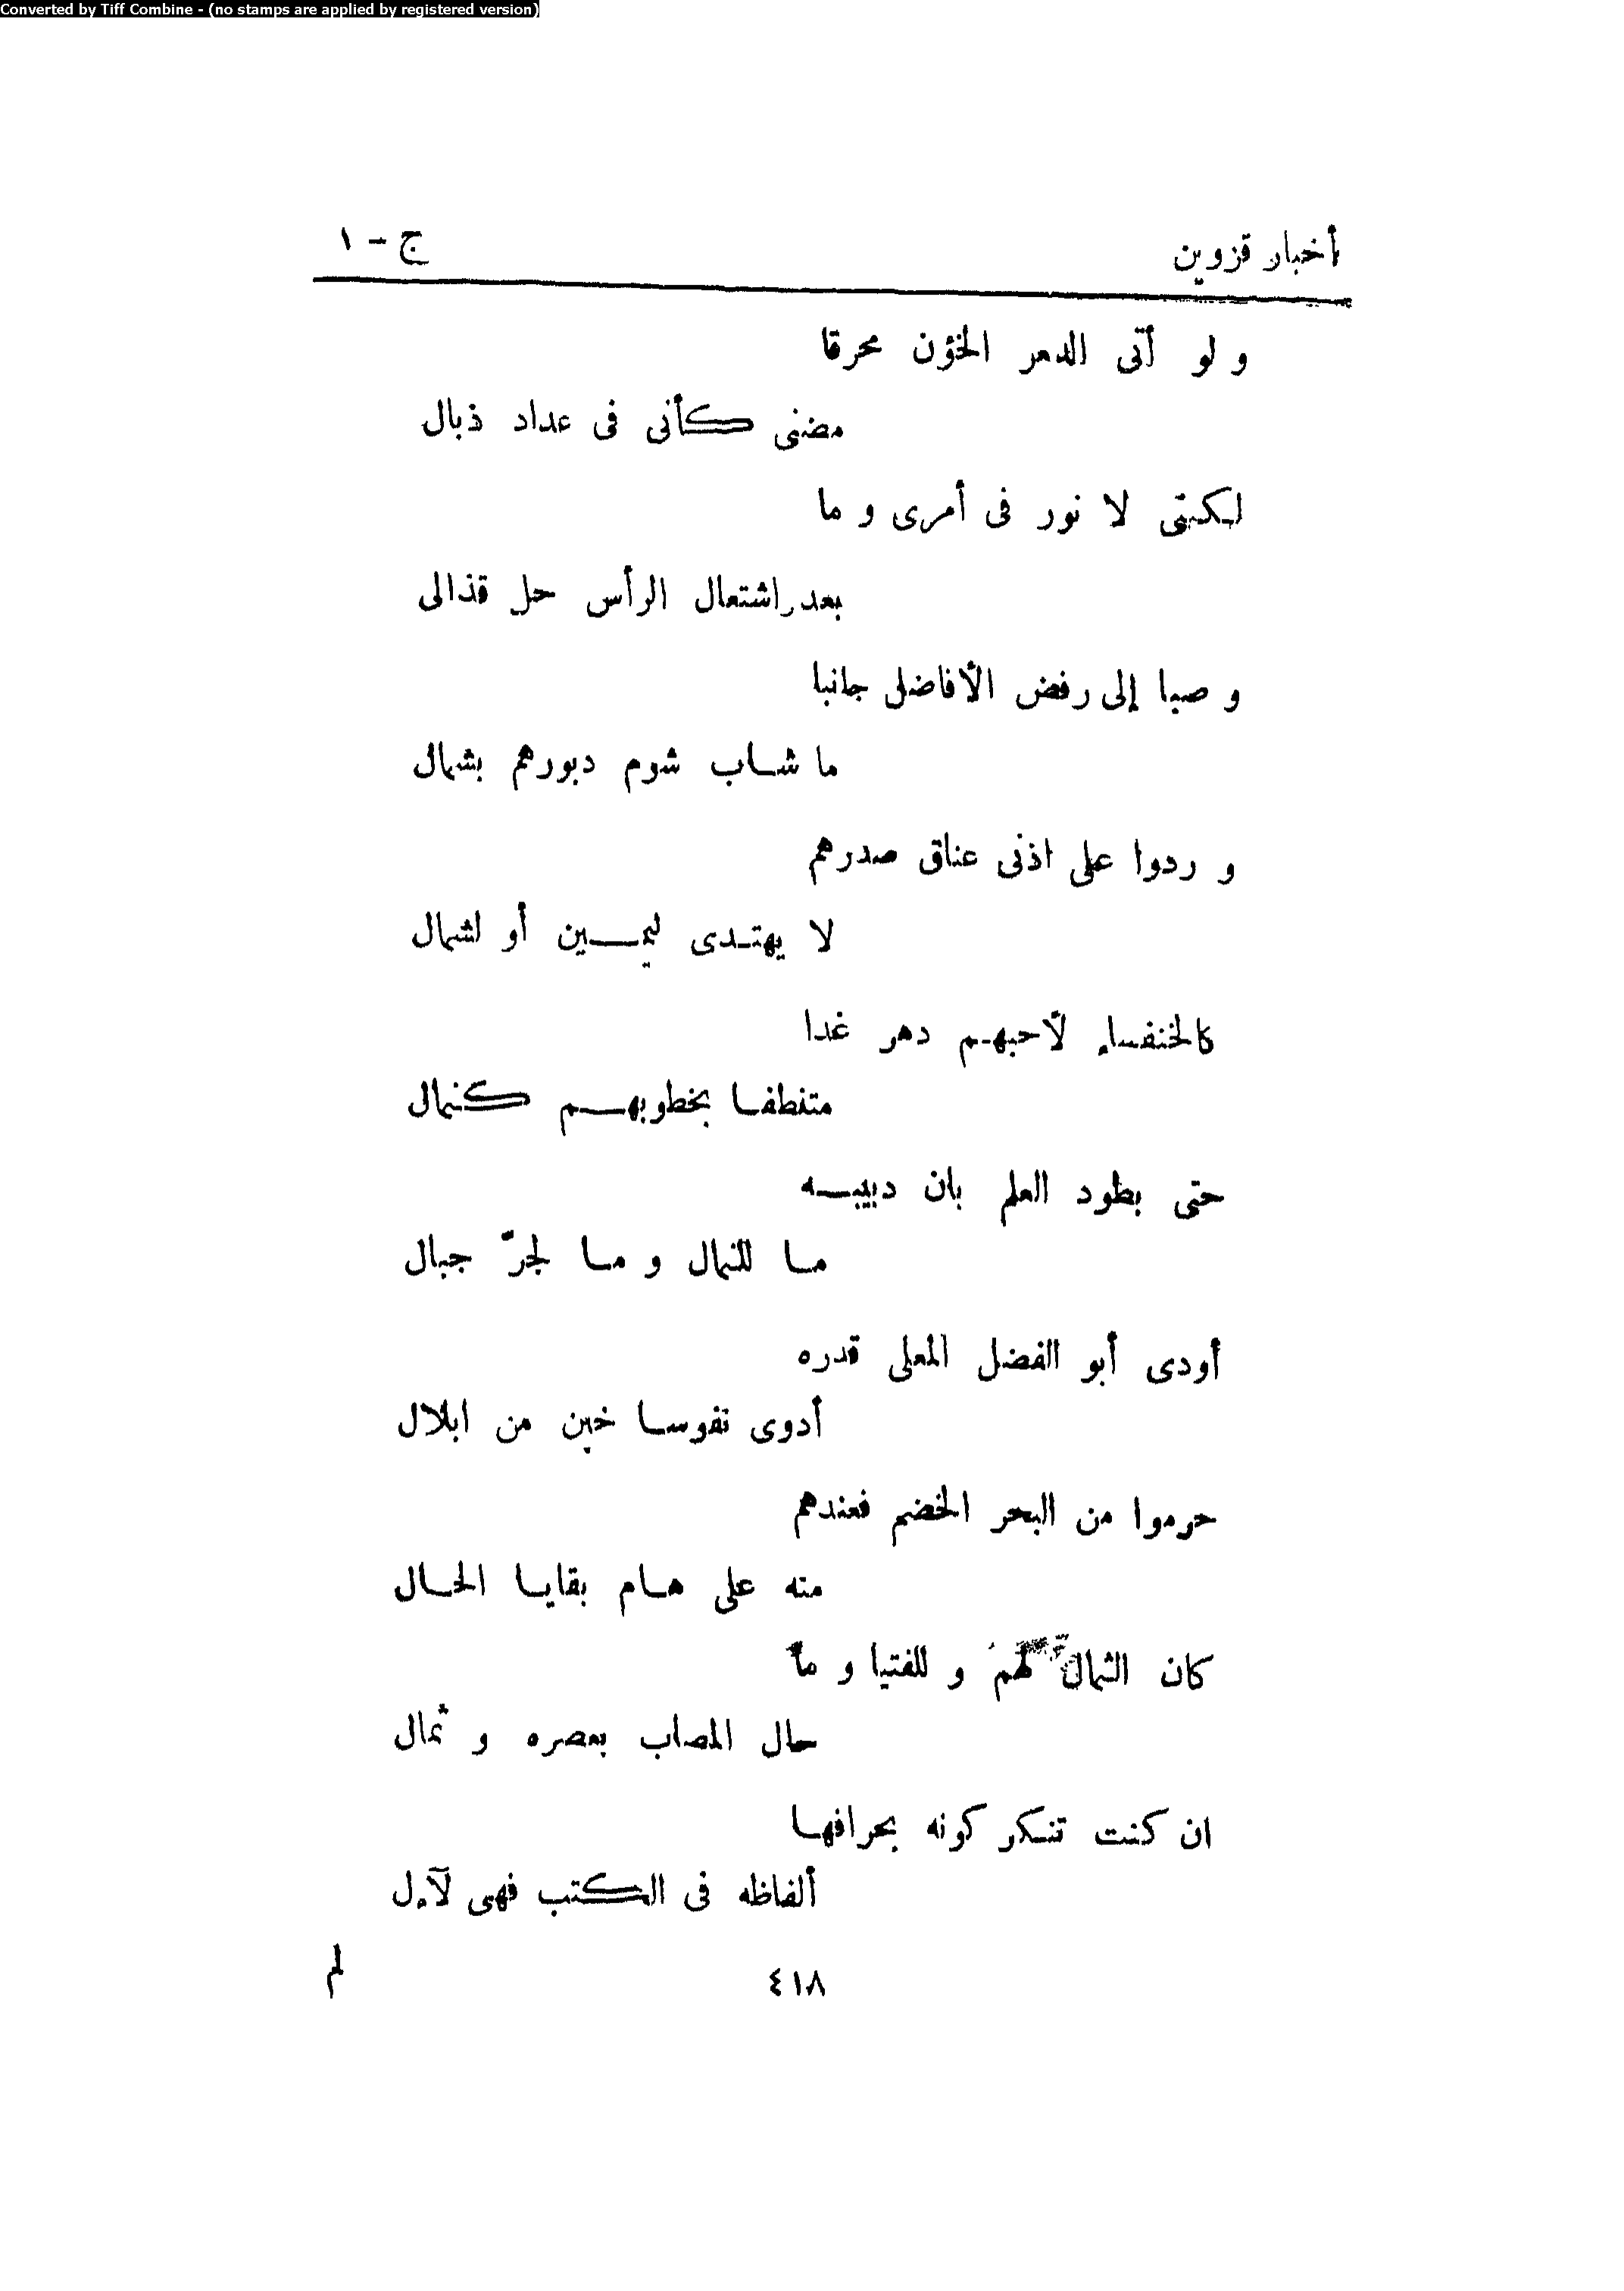 Converted by Tiff Combine - (no stamps are applied by registered version)
أخبار قزوين ج - ١
و لو أتى الدهر الخؤن محرقا
مضنى كأنى فى عداد ذبال
لكنى لا نور فى أمرى و ما
بعد اشتعال الرأس حل قذالى
و صبا إلى رفض الأفاضل جانبا
ما شاب شوم دبورهم بشمال
و ردوا على اذنى عناق صدرهم
لا يهتدى ليمين أو لشمال
كالخنفساء لاحبهم دهر غدا
متفطفا بخطوبهم كنمال
حتى بطود العلم بان دبيبه
ما للنمال و ما لجرّ جبال
أودى أبو الفضل المعلى قدره
أدوى نفوسا خبن من ابلال
حرموا من البحر الخضم فعندهم
منه على هام بقايا الحال
كان الثمال لهم و للفتيا و ما
حال المصاب بعصره و ثمال
ان كنت تنكر كونه بحرافها
ألفاظه فى الكتب فهى لآءل
٤١٨ لم